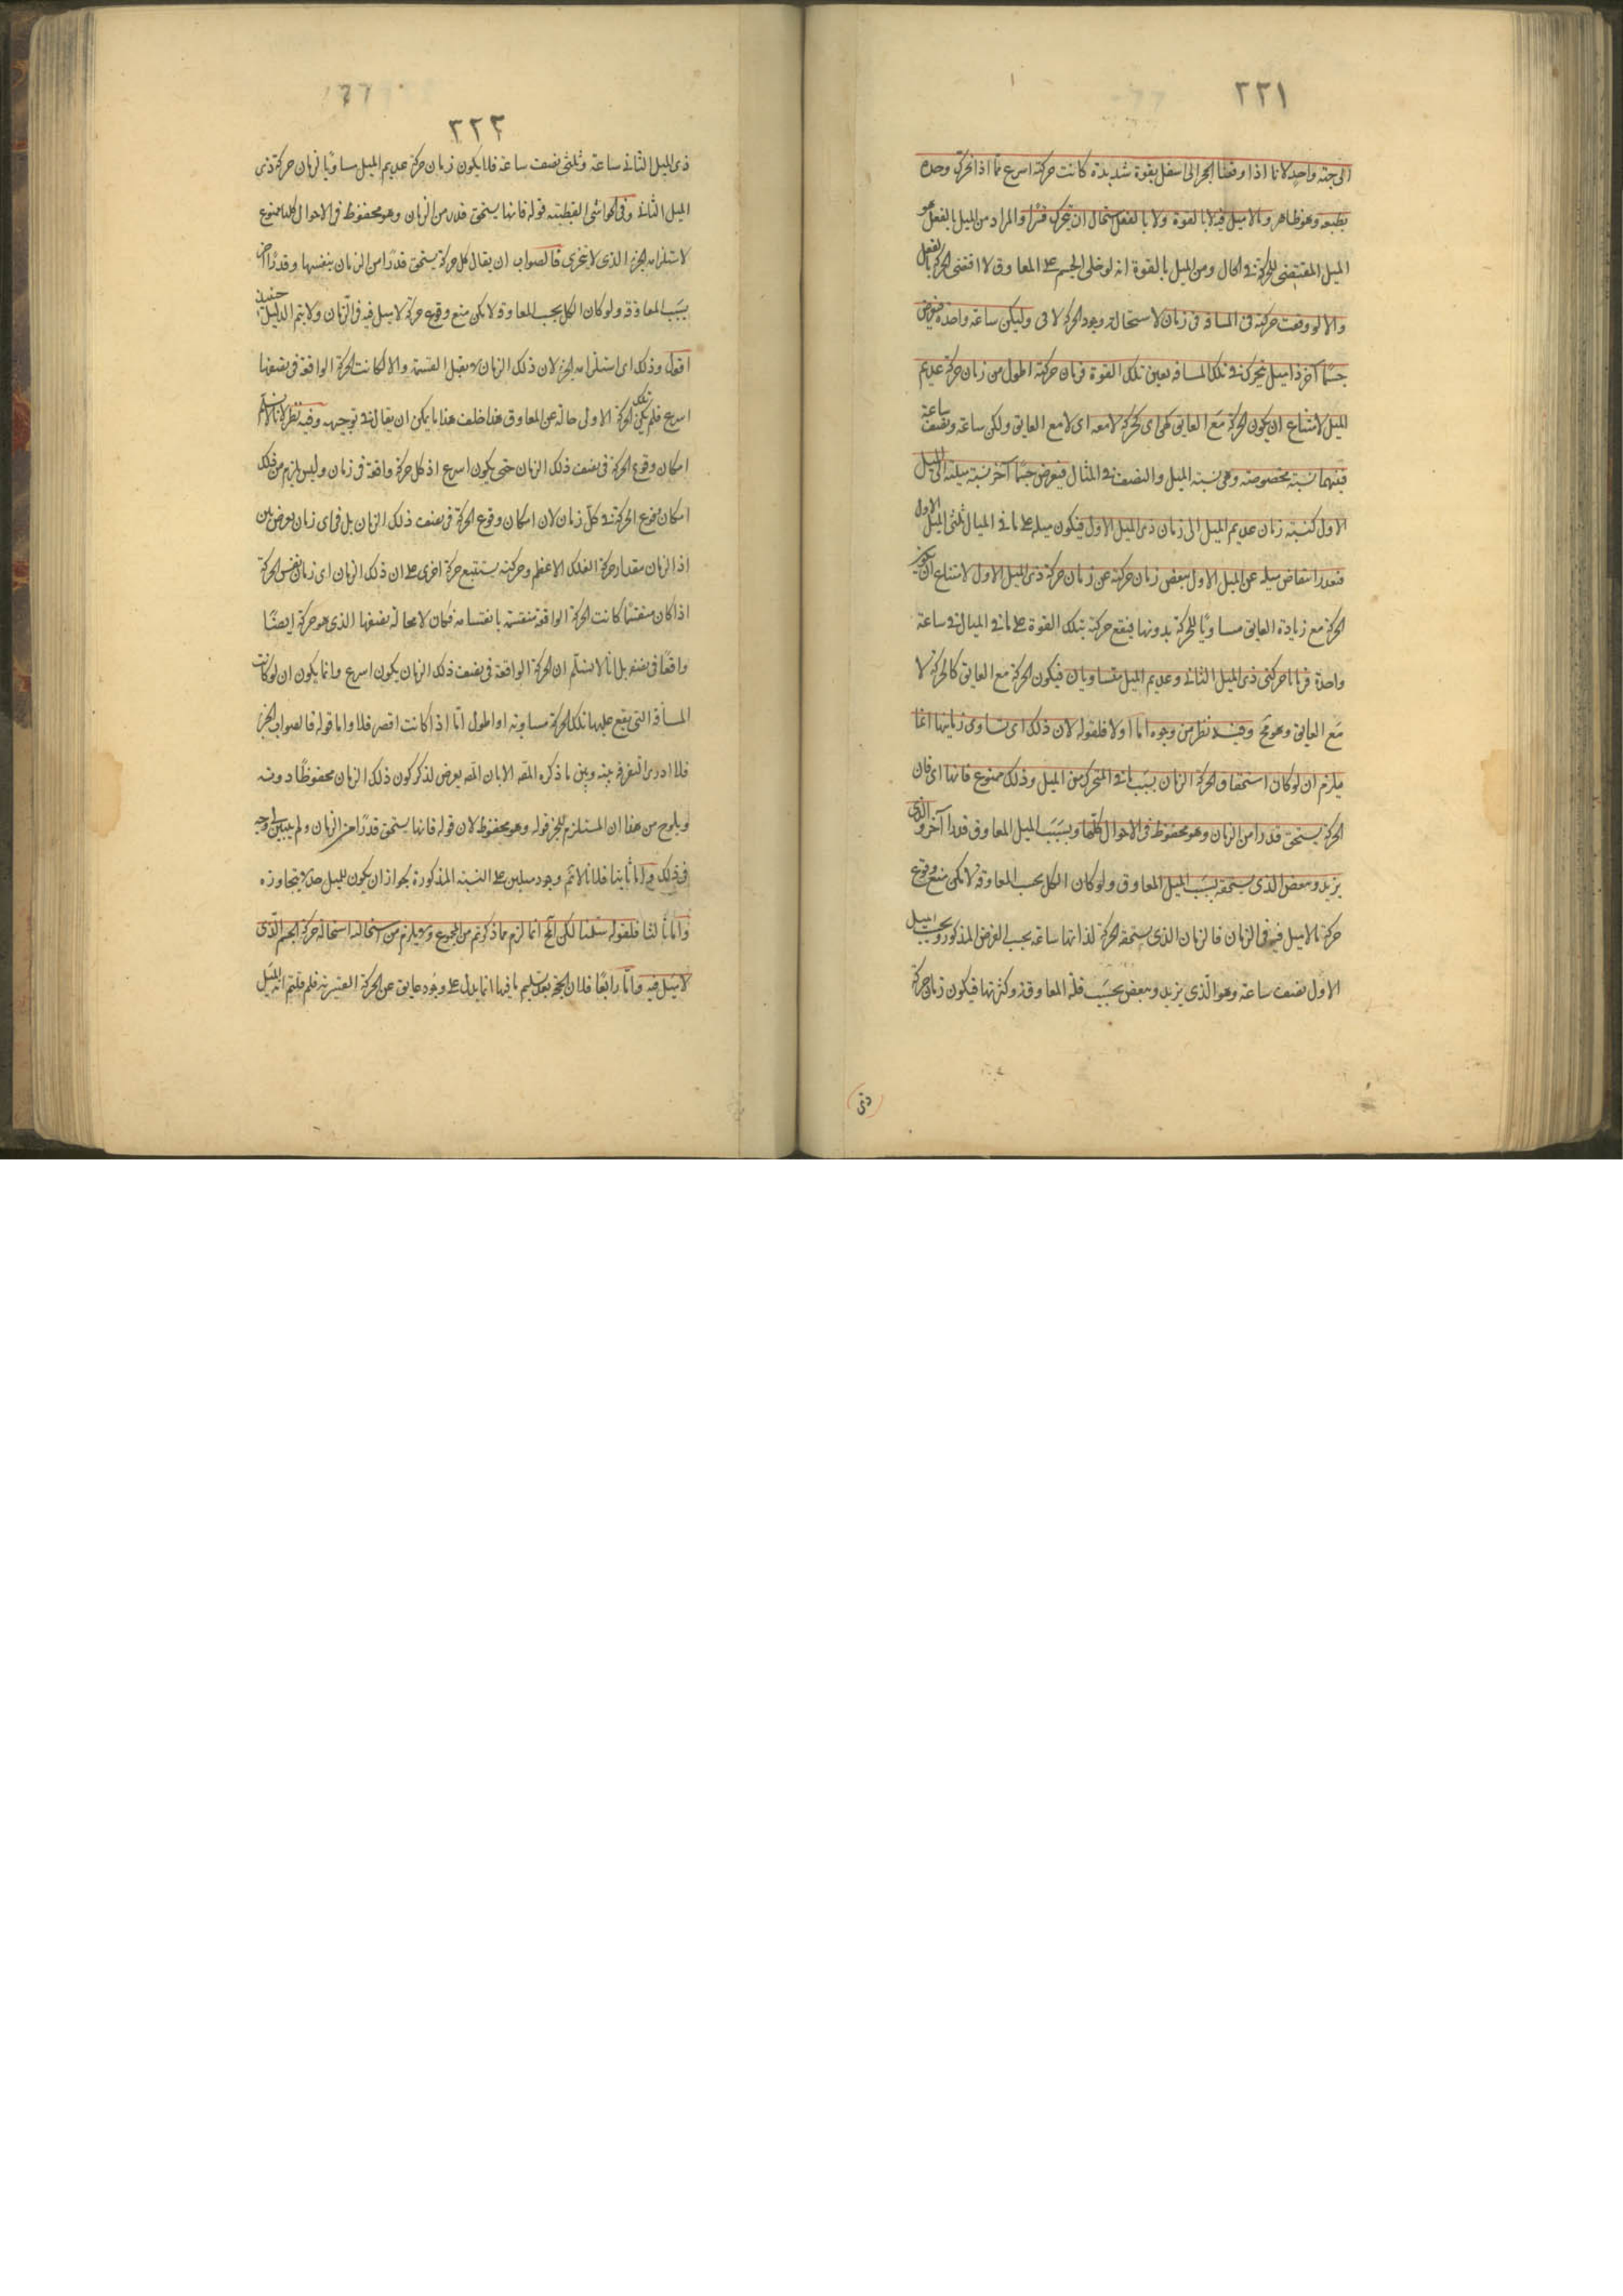 ٢٢١
الى جهة واحدة لانا اذا دفعنا الحجر الى اسفل بقوة شديدة كانت حركته اسرع مما اذا تحرك وحده
بطبعه وهو ظاهر وما لا ميل فيه لا بالقوة ولا بالفعل استحال ان يتحرك قسرا والمراد من الميل بالفعل هو
الميل المقتضى للحركة فى الحال ومن الميل بالقوة انه لو خلى الجسم عن المعاوق لاقتضى الحركة بالفعل
والا لو وقعت حركته فى المسافة فى زمان لاستحالة وجود الحركة لا فى وليكن ساعة واحدة فنفرض
جسما آخر ذا ميل يتحرك فى تلك المسافة بعين تلك القوة فزمان حركته اطول من زمان حركة عديم
الميل لامتناع ان يكون الحركة مع العايق كهى اى كالحركة لا معه اى لا مع العايق ولكن ساعة ونصف ساعة
فبينهما نسبة مخصوصة وهى نسبة الميل والنصف فى المثال فنفرض جسما آخر نسبة ميله الى الميل
الاول كنسبة زمان عديم الميل الى زمان ذى الميل الاول فيكون ميله على ما فى المثال ثلثى الميل الاول
فبقدر انتقاص ميله عن الميل الاول ينقص زمان حركته عن زمان حركة ذى الميل الاول لامتناع ان يكون
الحركة مع زيادة العايق مساويا للحركة بدونها فيقع حركته بتلك القوة على ما فى المثال فى ساعة
واحدة فزمانا حركتى ذى الميل الثانى وعديم الميل متساويان فيكون الحركة مع العايق كالحركة لا
مع العايق وهو مح وفيه نظر من وجوه اما اولا فلقوله لان ذلك اى تساوى زمانيهما انما
يلزم ان لو كان استحقاق الحركة الزمان بسبب ما فى المتحرك من الميل وذلك ممنوع فانها اى فان
الحركة يستحق قدرا من الزمان وهو محفوظ فى الاحوال كلها وبسبب الميل المعاوق قدرا آخر والذى
يزيد وينقص الذى يستحقه بسبب الميل المعاوق ولو كان الكل بحسب المعاوقة لامكن منع وقوع
حركة ما لا ميل فيه فى الزمان فالزمان الذى يستحقه الحركة لذاتها ساعة بحسب الفرض المذكور وبحسب الميل
الاول نصف ساعة وهو الذى يزيد وينقص بحسب قلة المعاوقة وكثرتها فيكون زمان حركة
ذى
٢٢٢
ذى الميل الثانى ساعة وثلثى نصف ساعة فلا يكون زمان حركة عديم الميل مساويا لزمان حركة ذى
الميل الثانى وفى الحواشى القطبية قوله فانها يستحق قدرا من الزمان وهو محفوظ فى الاحوال كلها ممنوع
لاستلزامه الجزء الذى لا يتجزى فالصواب ان يقال كل حركة يستحق قدرا من الزمان بنفسها وقدرا آخر
بسبب المعاوقة ولو كان الكل بحسب المعاوقة لامكن منع وقوع حركة لا ميل فيه فى الزمان ولا يتم الدليل حينئذ
اقول وذلك اى استلزامه الجزء لان ذلك الزمان لا يقبل القسمة والا لكانت الحركة الواقعة فى نصفها
اسرع فلم يكن تلك الحركة الاولى حالة عن المعاوق هذا خلف هذا ما يمكن ان يقال فى توجيهه وفيه نظر لانا لا نسلم
امكان وقوع الحركة فى نصف ذلك الزمان حتى يكون اسرع اذ كل حركة واقعة فى زمان وليس يلزم من ذلك
امكان وقوع الحركة فى كل زمان لان امكان وقوع الحركة فى نصف ذلك الزمان بل فى اى زمان يعرض بين
اذ الزمان مقدار حركة الفلك الاعظم وحركته يستتبع حركة اخرى على ان ذلك الزمان اى زمان نفس الحركة
اذا كان منقسما كانت الحركة الواقعة منقسمة بانقسامه فكان لا محالة نصفها الذى هو حركة ايضا
واقعا فى نصفه بل انا لا نسلم ان الحركة الواقعة فى نصف ذلك الزمان يكون اسرع وانما يكون ان لو كانت
المسافة التى يقع عليها تلك الحركة مساوية او اطول اما اذا كانت اقصر فلا واما قوله فالصواب الخ
فلا ادرى التفرقة بينه وبين ما ذكره المصـ الا بان المصـ يعرض لذكر كون ذلك الزمان محفوظا دونه
ويلوح من هذا ان المستلزم للجزء قوله وهو محفوظ لان قوله فانها يستحق قدرا من الزمان ولم يتبين لى وجه
فى ذلك واما ثانيا فلانا لا نم وجود ميلين على النسبة المذكورة لجواز ان يكون للميل حد لا يتجاوزه
واما ثالثا فلقوله سلمنا لكن المح انما لزم مما ذكرتم من المجموع ولا يلزم من استحالته استحالة حركة الجسم الذى
لا ميل فيه واما رابعا فلان الحجة بعد تسليم ما فيها انما يدل على وجود عايق عن الحركة القسرية فلم قلتم انه الميل